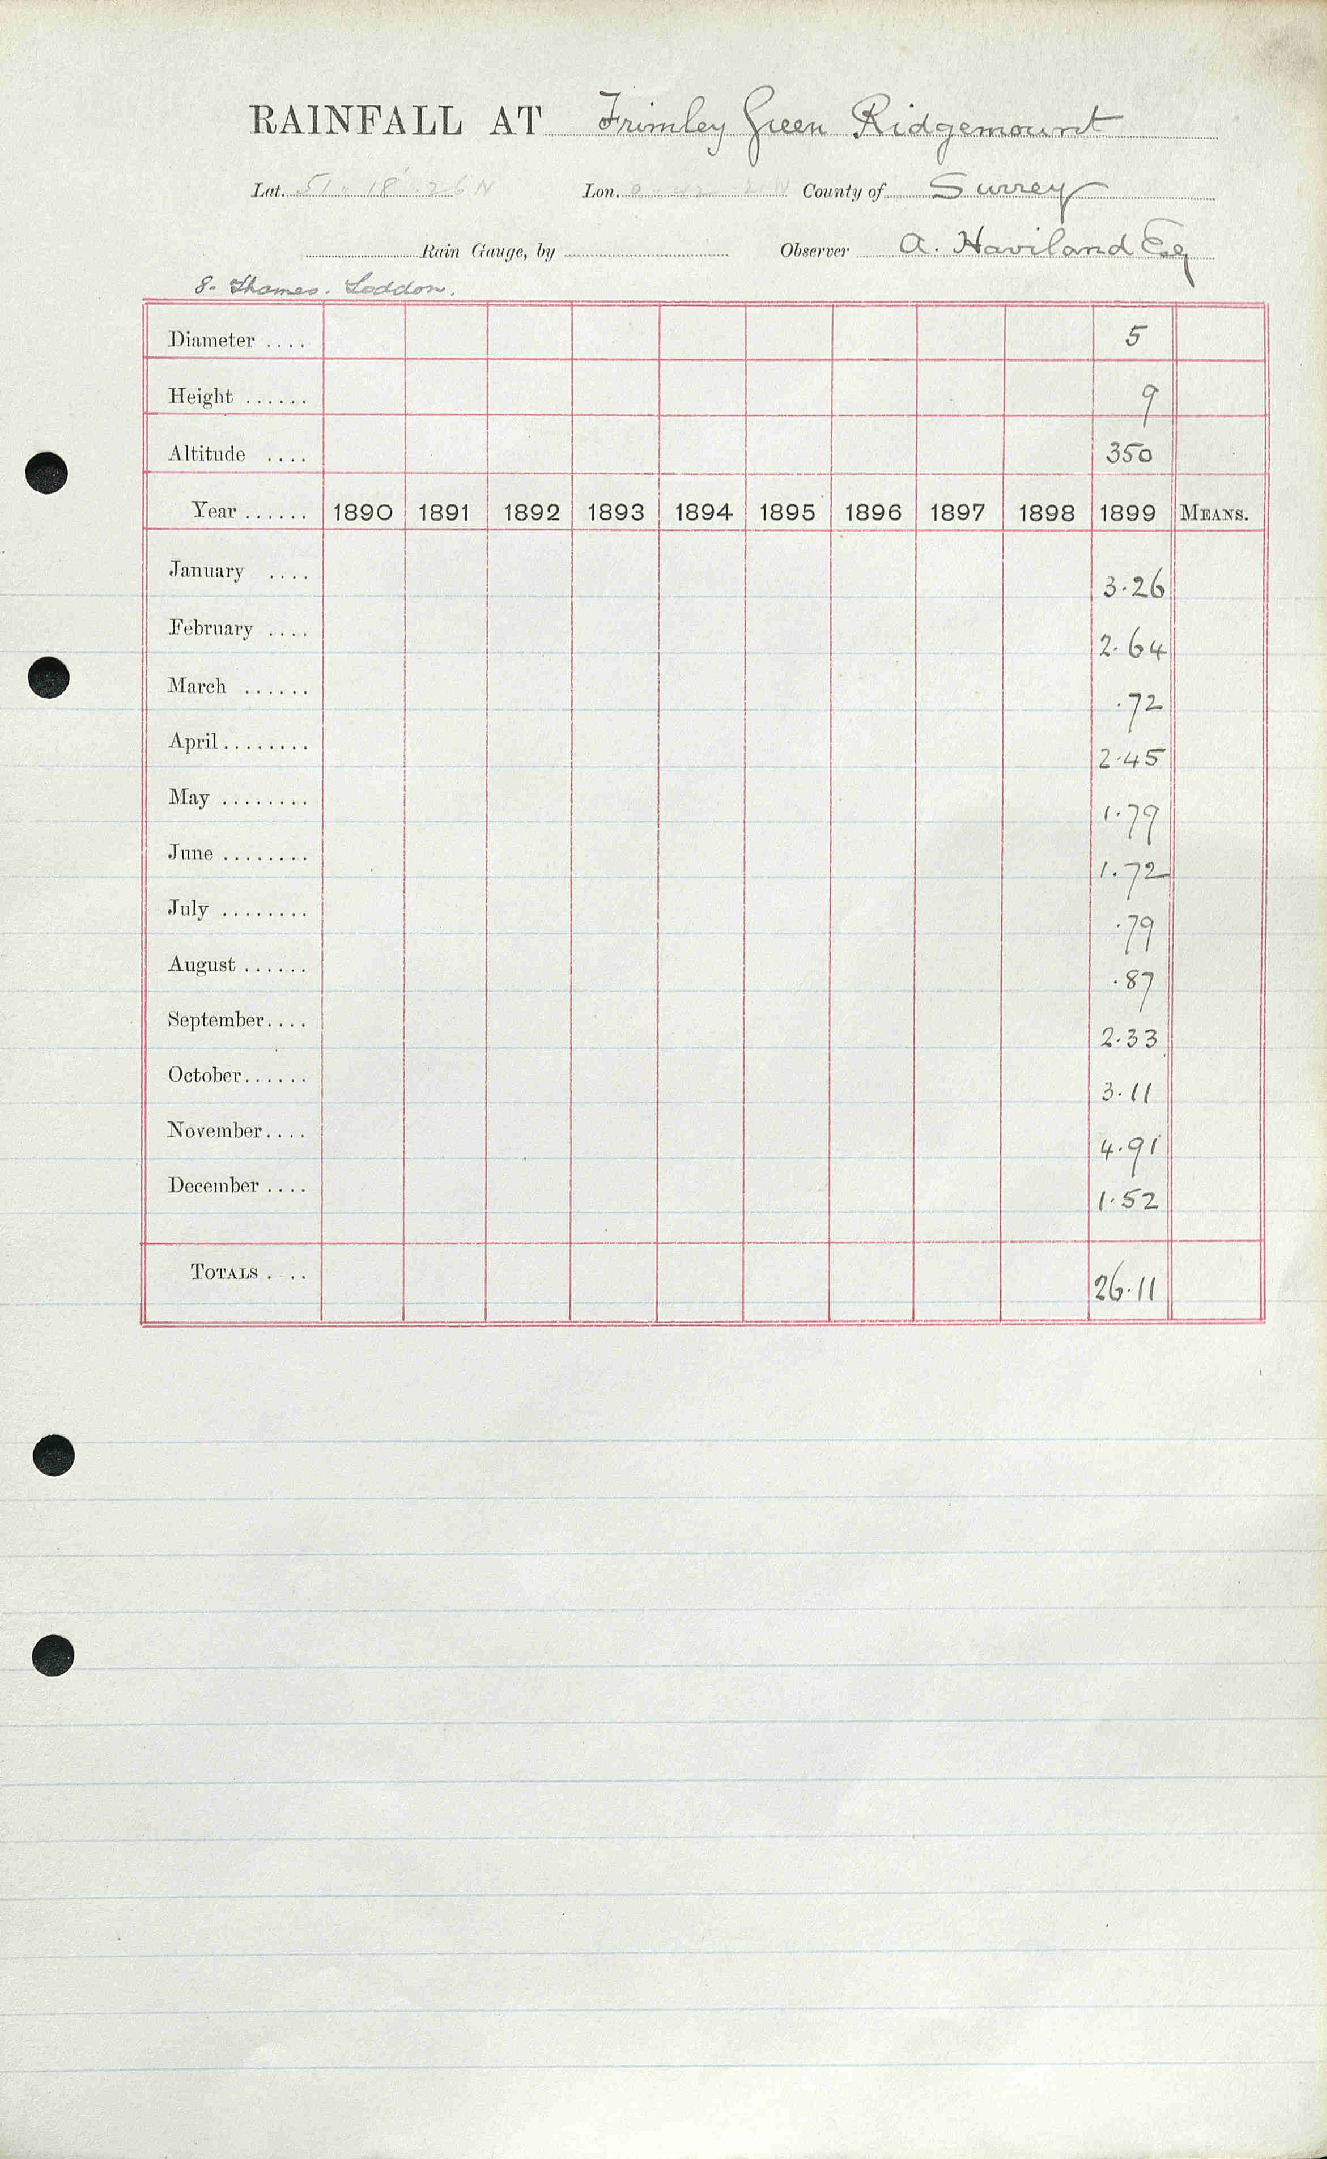 RAINFALL AT Frimley Green Ridgemount
Lat. 51. 18'. 26 N Lon. 0. 42 County of Surrey
Rain Gauge, by Observer A. Haviland Esq
8. Thames. Loddon.
Diameter .... 5
Height ...... 9
Altitude .... 350
Year ...... 1890 1891 1892 1893 1894 1895 1896 1897 1898 1899 MEANS.
January .... 3.26
February .... 2.64
March ...... .72
April ........ 2.45
May ........ 1.79
June ........ 1.72
July ........ .79
August ...... .87
September.... 2.33
October...... 3.11
November.... 4.91
December .... 1.52
TOTALS . .. 26.11